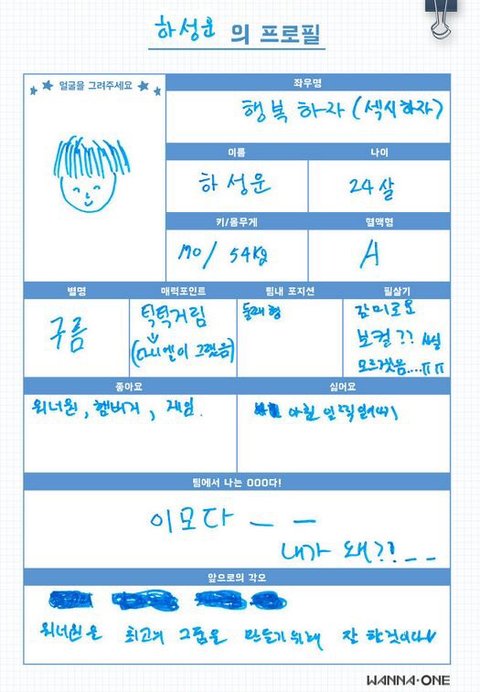 하성운 의 프로필
얼굴을 그려주세요
좌우명
행복하자 (섹시하자)
이름
나이
하성운
24살
키/몸무게
혈액형
170/ 54kg
A
별명
매력포인트
팀내 포지션
필살기
구름
틱틱거림
(다니엘이 그랬음)
둘째형
감미로운
보컬??
모르겠음....ㅠㅠ
좋아요
싫어요
워너원, 햄버거, 게임.
아침 일찍 일어나기
팀에서 나는 OOO다!
이모다 _ _
내가 왜?!_ _
앞으로의 각오
워너원은 최고의 그룹을 만들기 위해 잘 할것이다
WANNA·ONE